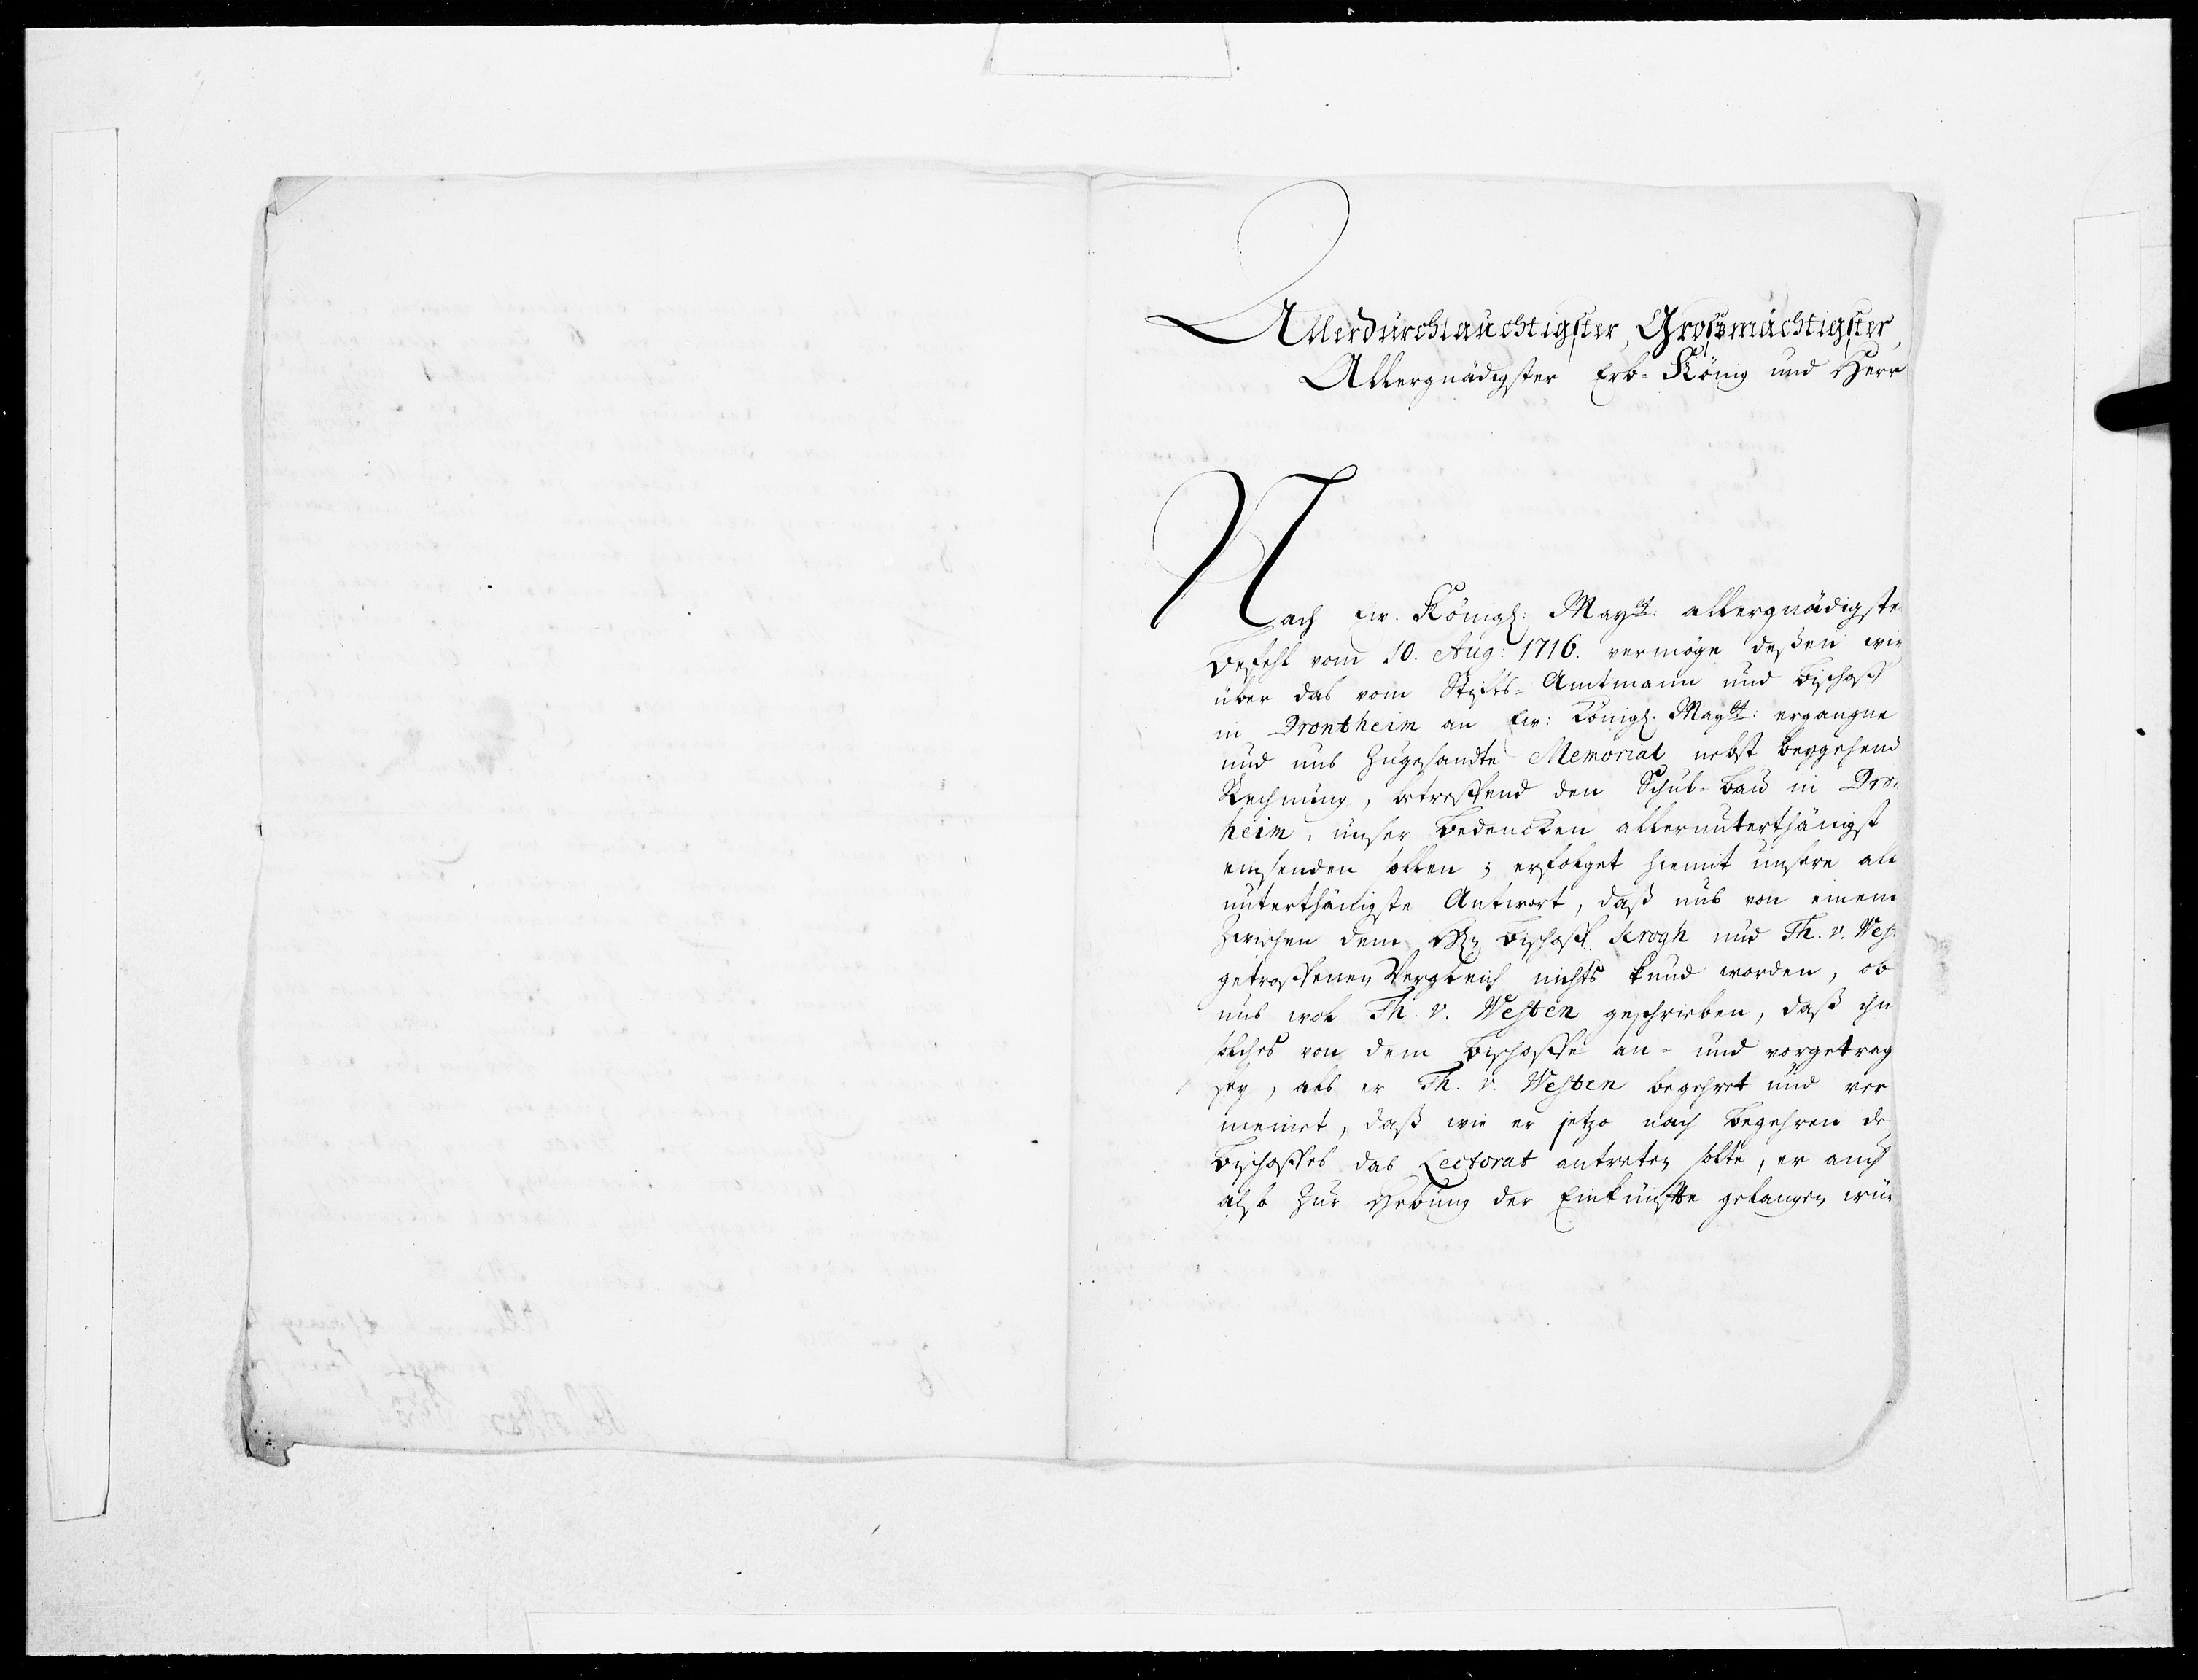 Allerdurchlauchtigster, Großmächtigster,
Allergnädigster Erb-König und Herr
Nach Ew. Königl: Mayᵗᵗ: allergnädigste
Befehl vom 10. Aug: 1716. vermöge deßen wir
über das vom Stiffts-Amtmann und Bischoff
in Drontheim an Ew: Königl. Mayᵗᵗ: ergangne
und uns zugesandte Memorial nebst beygehend
Rechnung, betreffend den Schul-Bau in Dron
heim, unser Bedencken allerunterthänigst
einsenden sollen; erfolget hiemit unsere all
unterthänigste Antwort, daß uns von einem
zwischen dem Hn Bischoff Krogh und Th. v. West
getroffenen Vergleich nichts kund worden, ob
uns wol Th. v. Westen geschrieben, daß ihn
solches von dem Bischoffe an- und vorgetrag
sey, als er Th. v. Westen begehret und ver
meinet, daß wie er jetzo nach Begehren de
Bischoffes das Lectorat antreten solte, er auch
also zur Hebung der Einkünffte gelangen wür